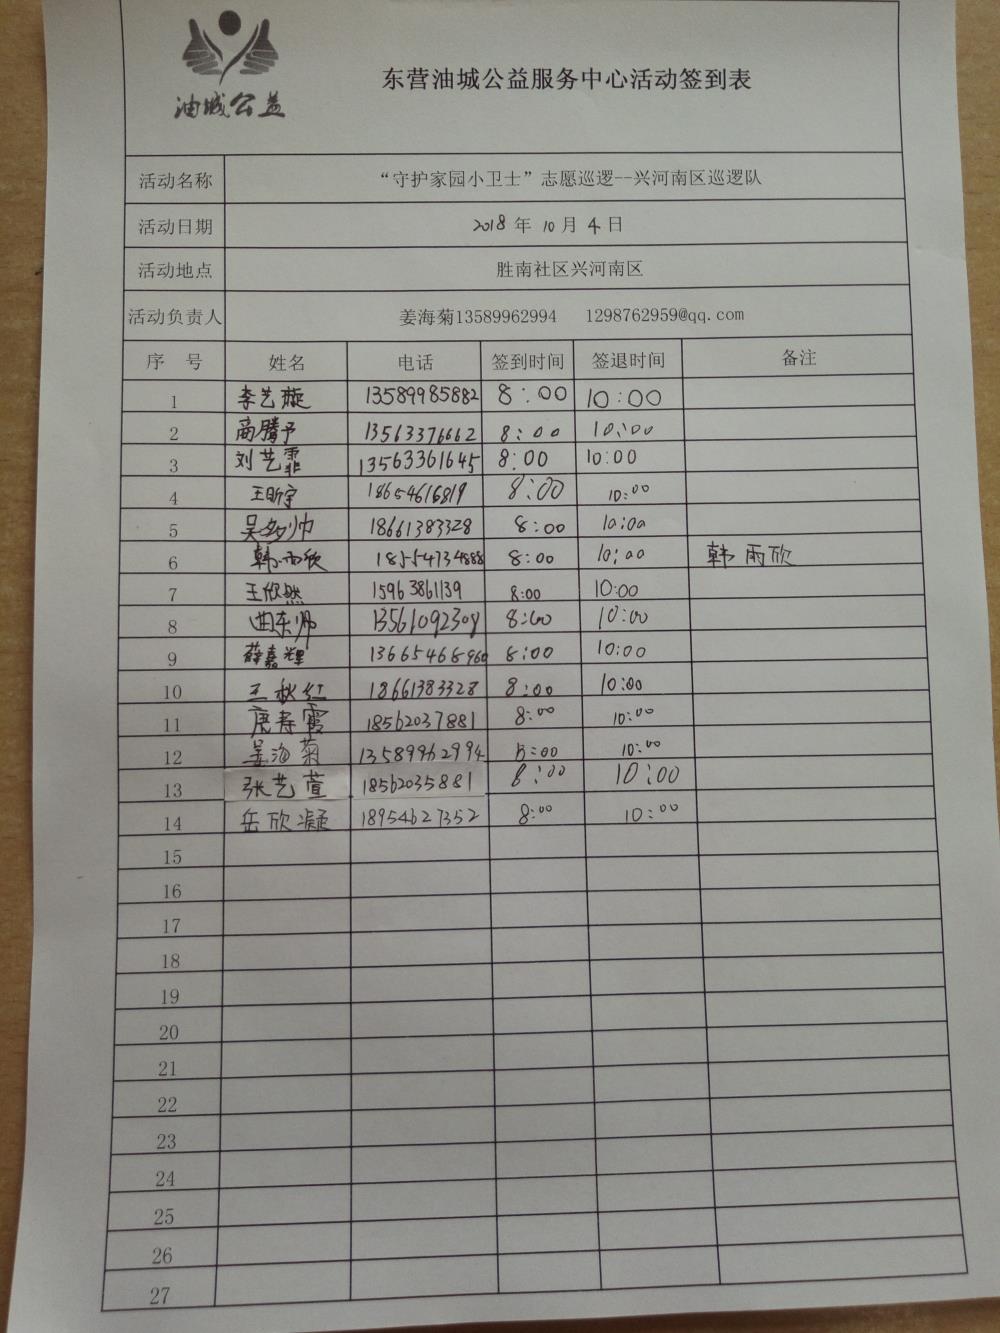 油城公益
东营油城公益服务中心活动签到表
活动名称 “守护家园小卫士”志愿巡逻--兴河南区巡逻队
活动日期 2018 年 10 月 4 日
活动地点 胜南社区兴河南区
活动负责人 姜海菊13589962994 1298762959@qq.com
序 号 姓名 电话 签到时间 签退时间 备注
1 李艺璇 13589985882 8:00 10:00
2 商腾予 13563376662 8:00 10:00
3 刘艺霏 13563361645 8:00 10:00
4 王昕宇 18654616819 8:00 10:00
5 吴多帅 18661383328 8:00 10:00
6 韩雨欣 18554734888 8:00 10:00 韩雨欣
7 王欣然 15963861139 8:00 10:00
8 曲东帅 13561092308 8:00 10:00
9 薛嘉辉 13665468960 8:00 10:00
10 王秋红 18661383328 8:00 10:00
11 唐寿霞 18562037881 8:00 10:00
12 姜海菊 13589962994 8:00 10:00
13 张艺萱 18562035881 8:00 10:00
14 岳欣凝 18954627352 8:00 10:00
15
16
17
18
19
20
21
22
23
24
25
26
27